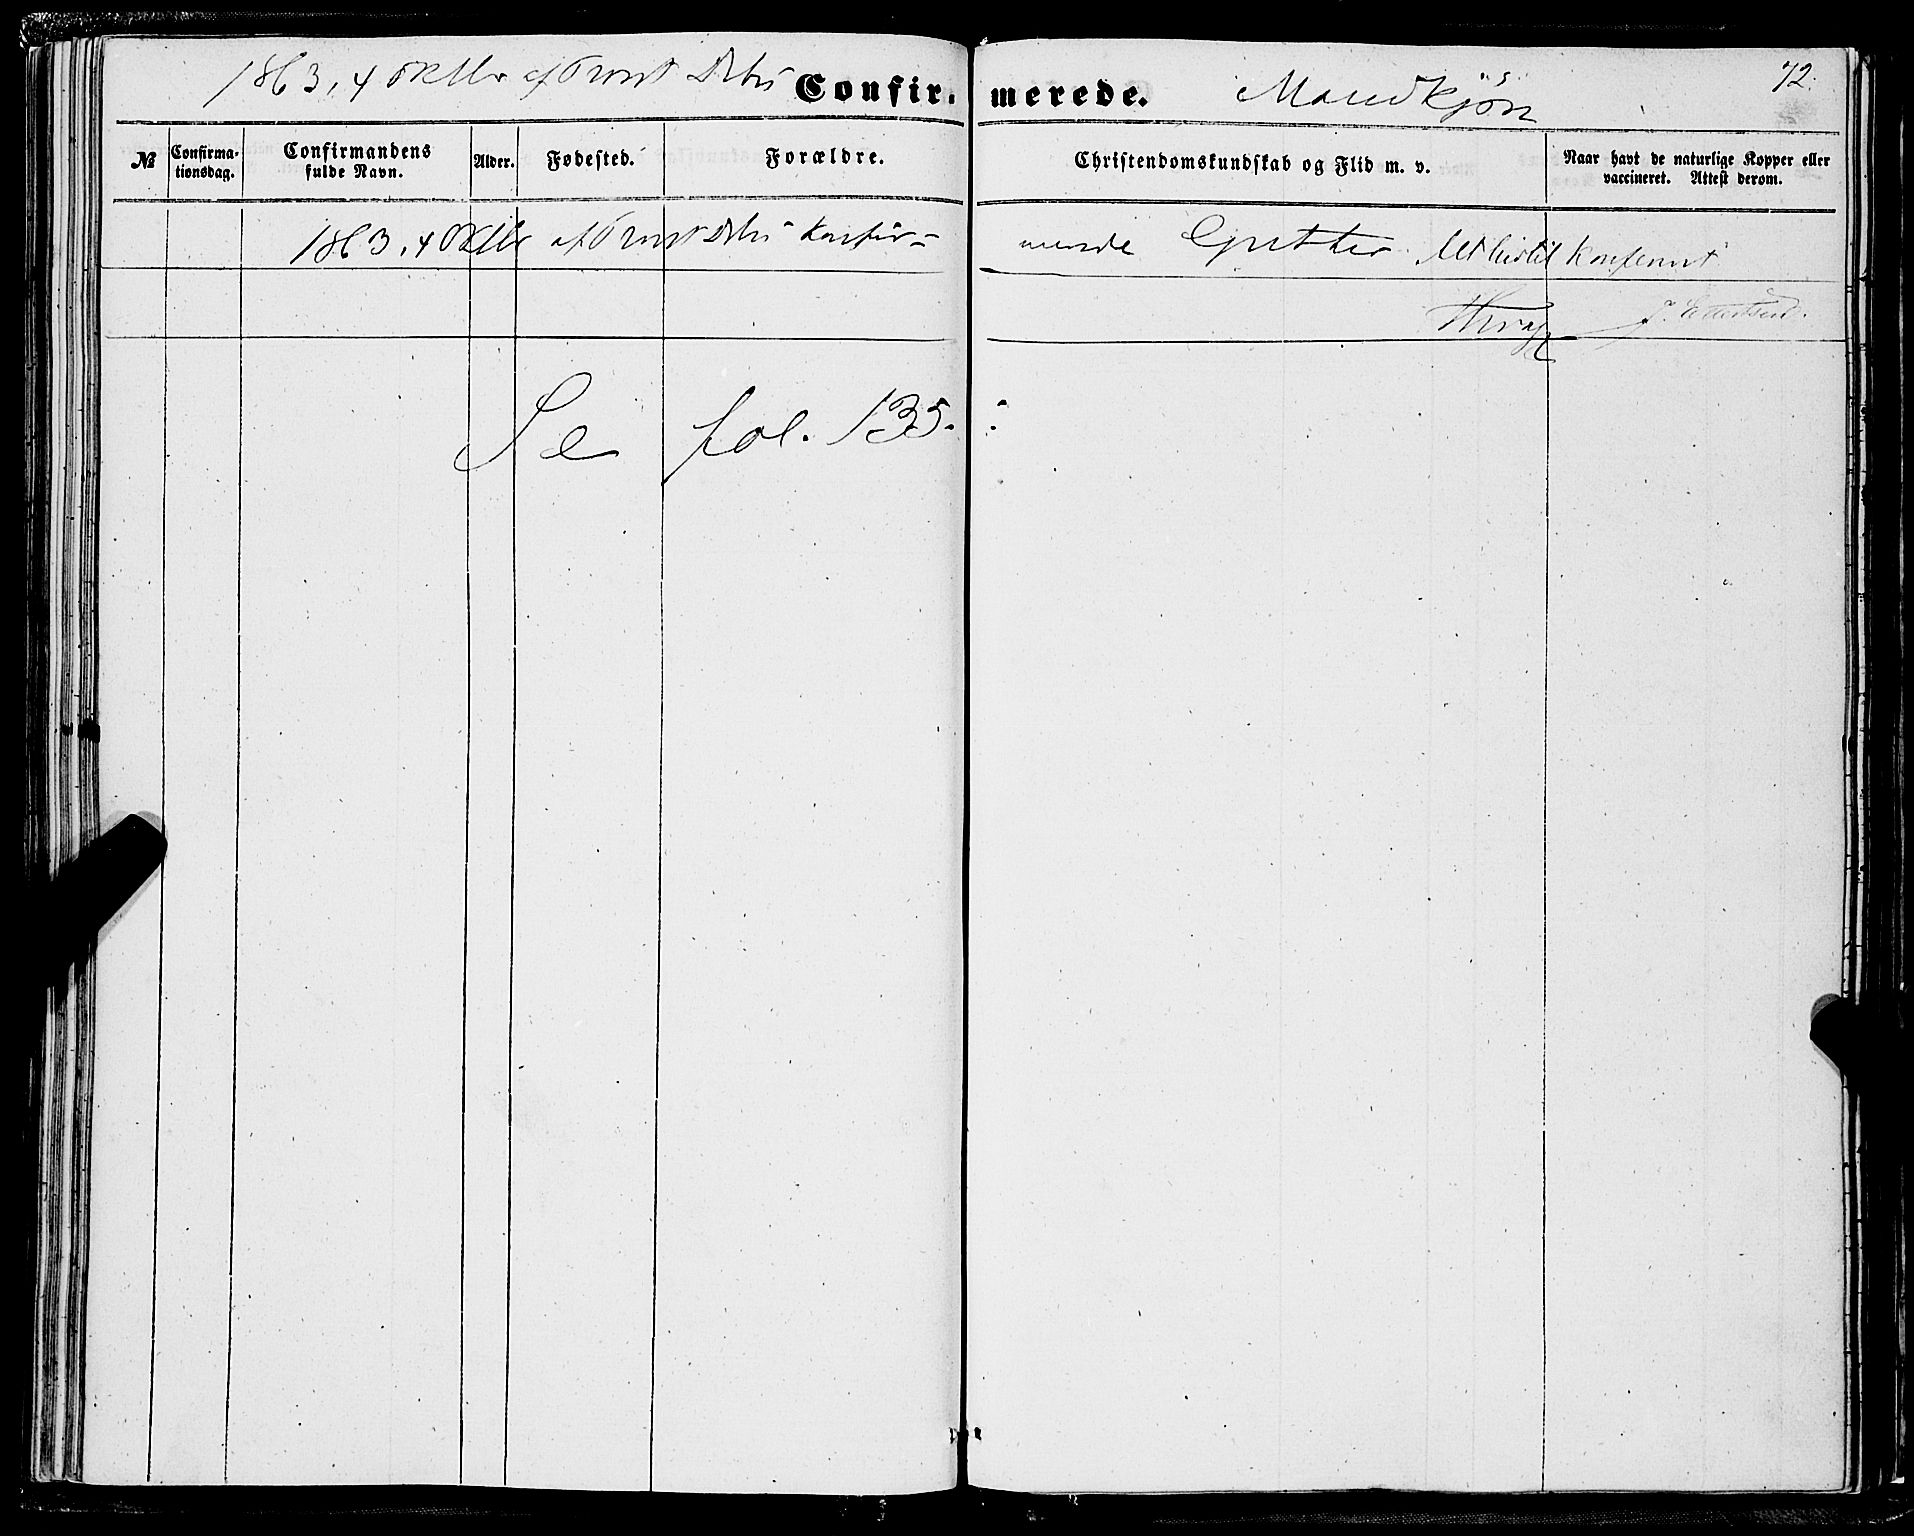 1863, 4 Oktbr af Provst Debes Confirmerede. Mandkjøn 72.
№ Confirmationsdag. Confirmandens fulde Navn. Alder. Fødested. Forældre. Christendomskundskab og Flid m. v. Naar havt de naturlige Kopper eller vaccineret. Attest derom.
1863, 4 Oktbr af Provst Debes Konfirmerede Gutter. Alt hertil Konfereret
Se fol. 135.